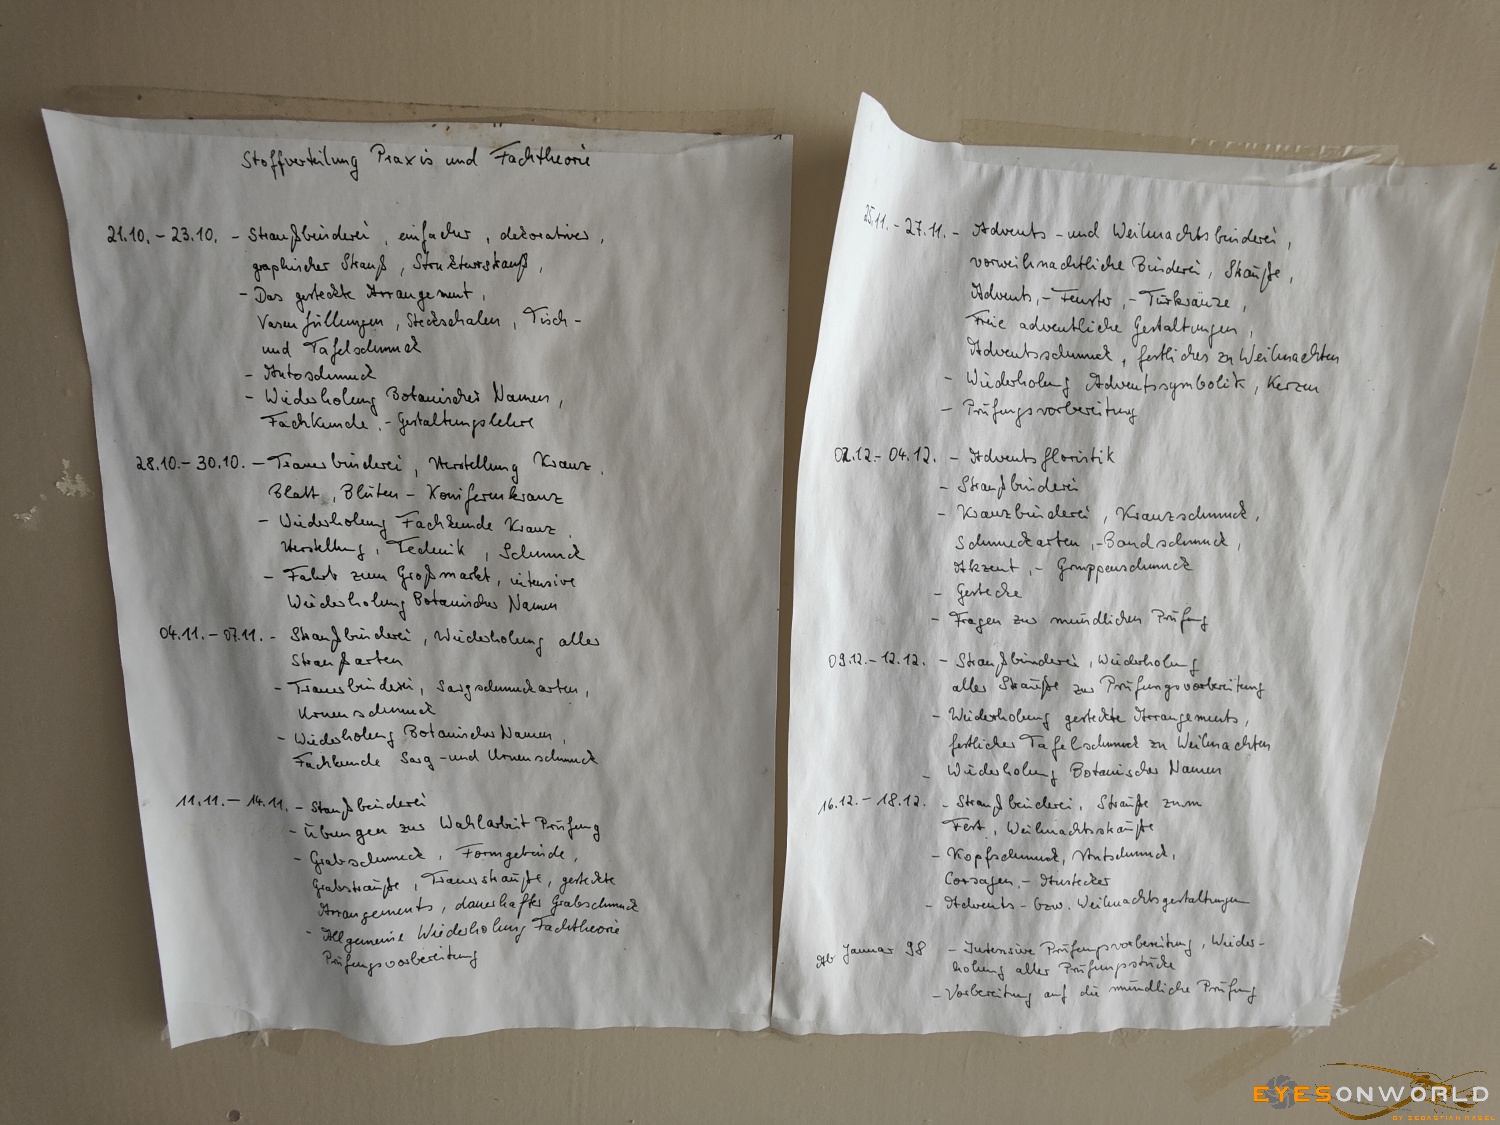 Stoffverteilung Praxis und Fachtheorie
21.10. - 23.10. - Straußbinderei, einfacher, dekorativer,
graphischer Strauß, Strukturstrauß,
- Das gesteckte Arrangement,
Vasenfüllungen, Steckschalen, Tisch-
und Tafelschmuck
- Autoschmuck
- Wiederholung Botanischer Namen,
Fachkunde, - Gestaltungslehre
28.10. - 30.10. - Trauerbinderei, Herstellung Kranz,
Blatt, Blüten - Koniferenkranz
- Wiederholung Fachkunde Kranz,
Herstellung, Technik, Schmuck
- Fahrt zum Großmarkt, intensive
Wiederholung Botanischer Namen
04.11. - 07.11. - Straußbinderei, Wiederholung aller
Straußarten
- Trauerbinderei, Sargschmuckarten,
Urnenschmuck
- Wiederholung Botanischer Namen,
Fachkunde Sarg- und Urnenschmuck
11.11. - 14.11. - Straußbinderei
- Übungen zur Wahlarbeit Prüfung
- Grabschmuck, Formgebinde,
Grabsträuße, Trauersträuße, gesteckte
Arrangements, dauerhafter Grabschmuck
- Allgemeine Wiederholung Fachtheorie
Prüfungsvorbereitung
25.11. - 27.11. - Advents- und Weihnachtsbinderei,
vorweihnachtliche Binderei, Sträuße,
Advents, - Fenster, - Türkränze,
Freie adventliche Gestaltungen,
Adventsschmuck, festliches zu Weihnachten
- Wiederholung Adventssymbolik, Kerzen
- Prüfungsvorbereitung
02.12. - 04.12. - Adventsfloristik
- Straußbinderei
- Kranzbinderei, Kranzschmuck,
Schmuckarten, - Bandschmuck,
Akzent, - Gruppenschmuck
- Gestecke
- Fragen zur mündlichen Prüfung
09.12. - 12.12. - Straußbinderei, Wiederholung
aller Sträuße zur Prüfungsvorbereitung
- Wiederholung gesteckte Arrangements,
festlicher Tafelschmuck zu Weihnachten
- Wiederholung Botanischer Namen
16.12. - 18.12. - Straußbinderei, Sträuße zum
Fest, Weihnachtssträuße
- Kopfschmuck, Hutschmuck,
Corsagen, - Anstecker
- Advents- bzw. Weihnachtsgestaltungen
Ab Januar 98 - Intensive Prüfungsvorbereitung, Wieder-
holung aller Prüfungsstücke
- Vorbereitung auf die mündliche Prüfung
EYESONWORLD
BY SEBASTIAN NAGEL